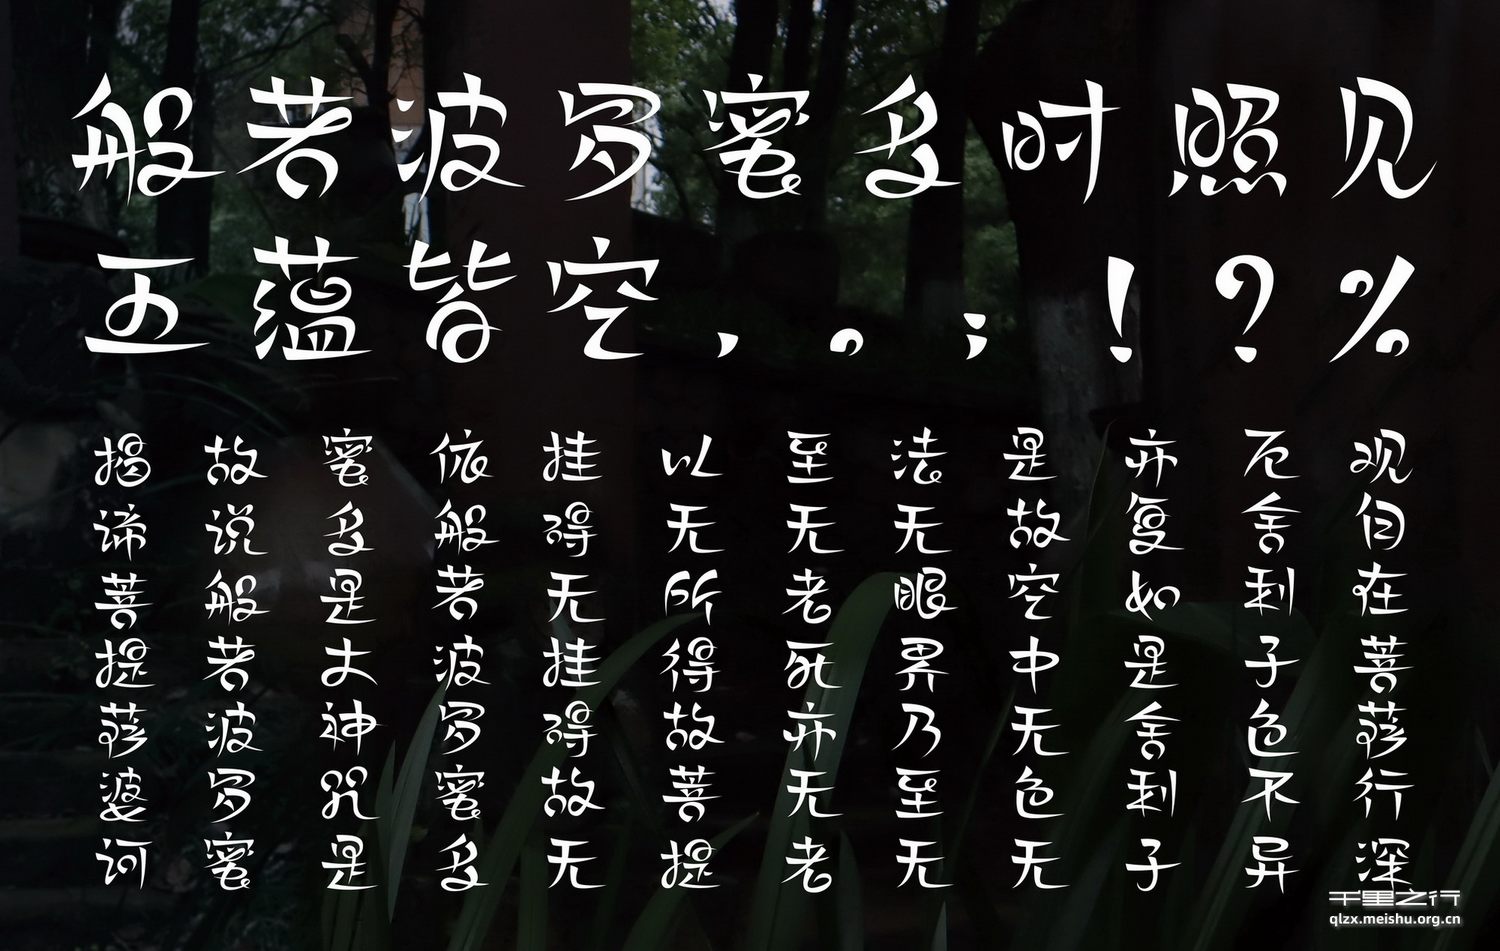 般若波罗蜜多时照见
五蕴皆空，。；！？%
观自在菩萨行深
厄舍利子色不异
亦复如是舍利子
是故空中无色无
法无眼界乃至无
至无老死亦无老
以无所得故菩提
挂碍无挂碍故无
依般若波罗蜜多
蜜多是大神咒是
故说般若波罗蜜
揭谛菩提萨婆诃
千里之行
qlzx.meishu.org.cn